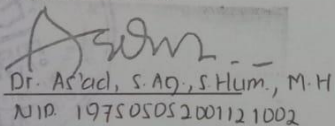 Dr. As'ad, S.Ag., S.Hum., M.H
NIP. 197505052001121002